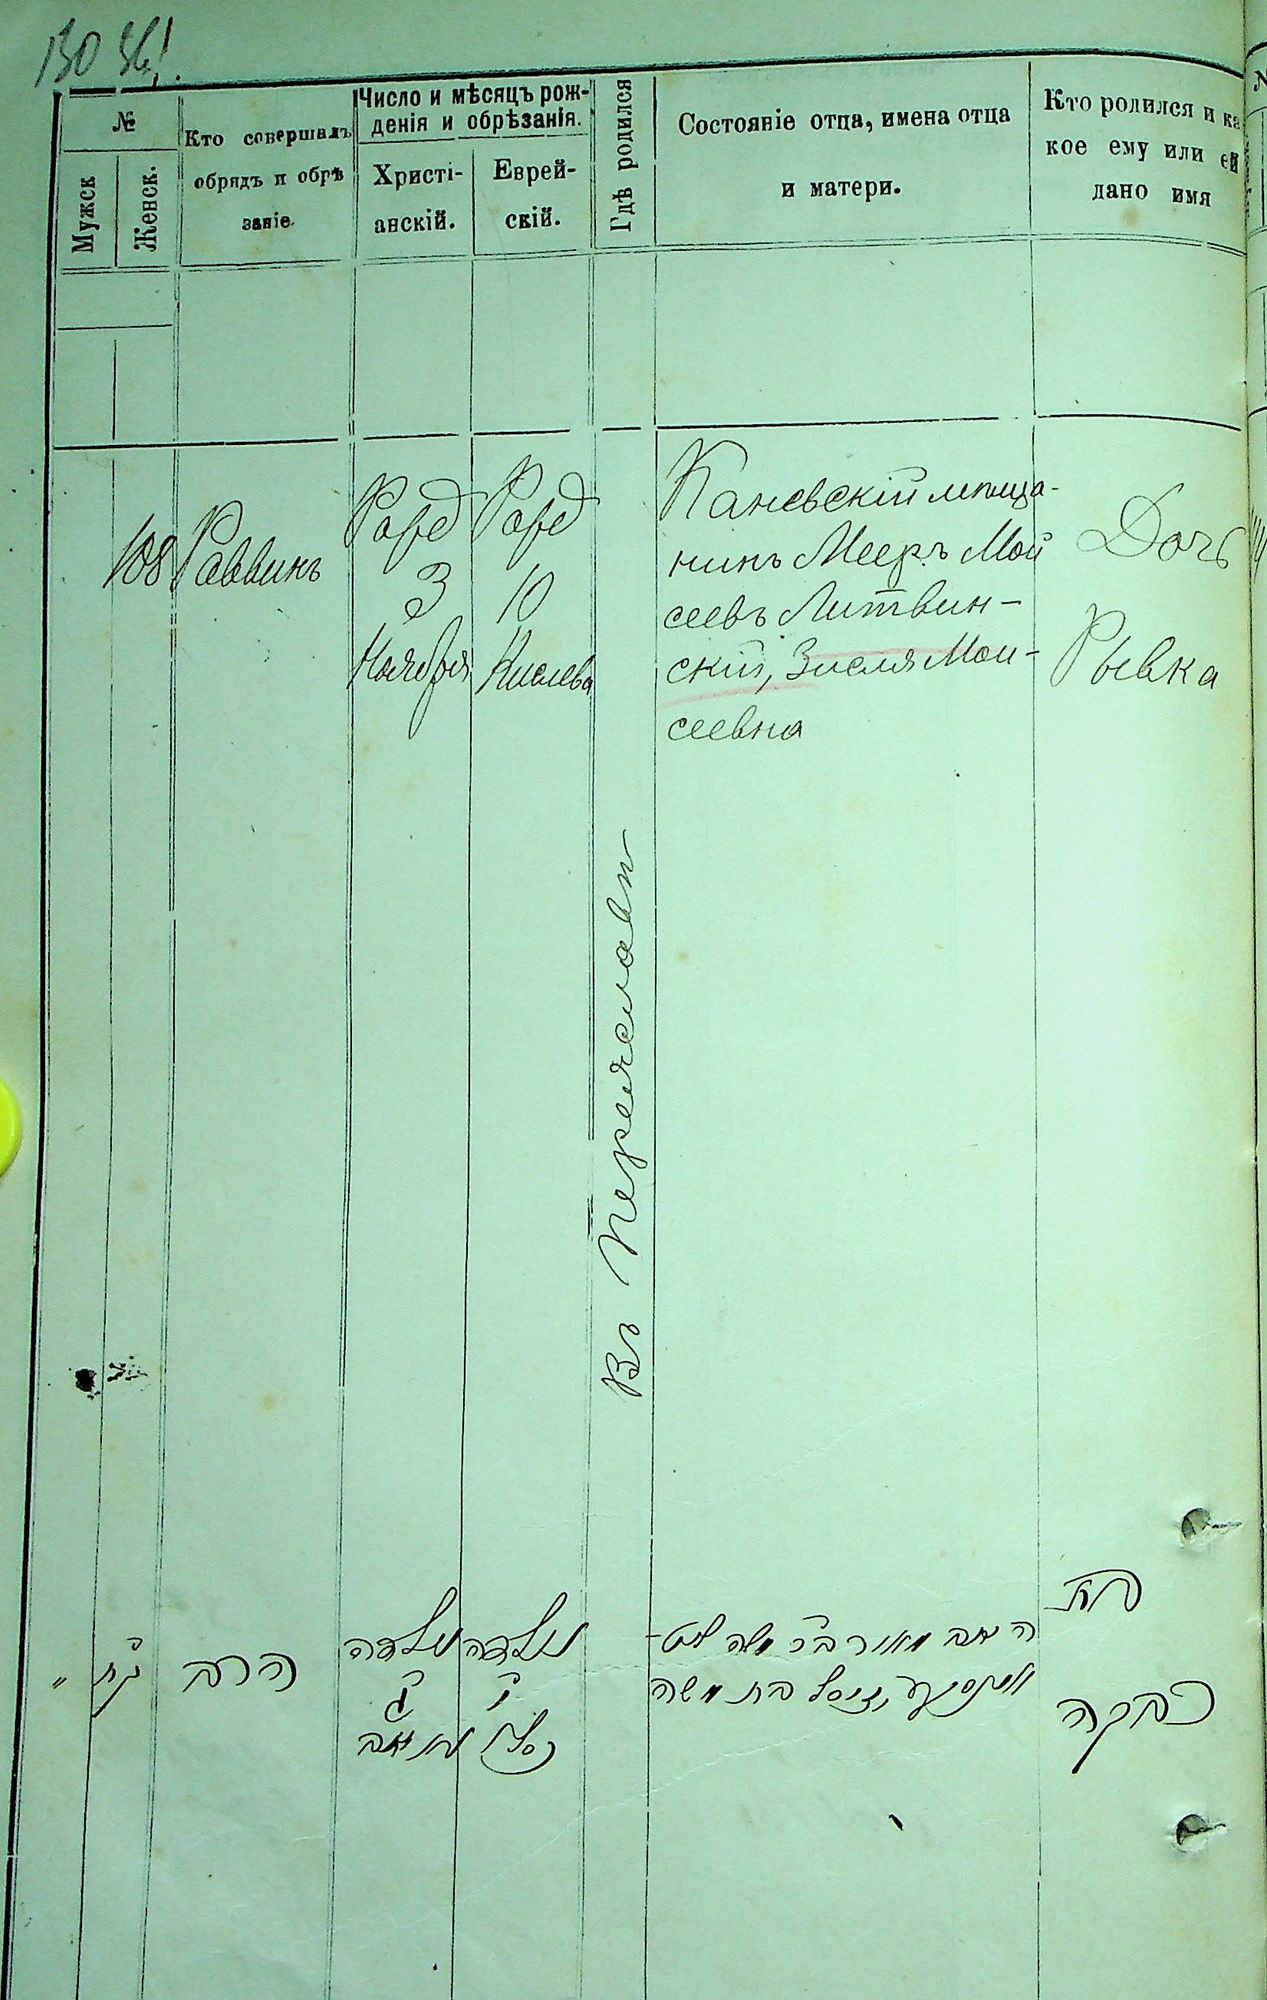 №
Мужск
Женск.
Кто совершалъ
обрядъ и обрѣ
заніе.
Число и мѣсяцъ рож-
денія и обрѣзанія.
Христі-
анскій.
Еврей-
скій.
Гдѣ родился
Состояніе отца, имена отца
и матери.
Кто родился и ка
кое ему или ей
дано имя
108
Раввинъ
Рожд
3
Ноября
Рожд
10
Кислева
Въ Переяславѣ
Каневскій мѣща-
нинъ Мееръ Мой
сеевъ Литвин-
скій, Зисля Мои-
сеевна
Дочь
Рывка
"
קח
הרב
נולדה
ג
נולדה
י
כסלו
משה ליט-
זיסל בת משה
בת
רבקה